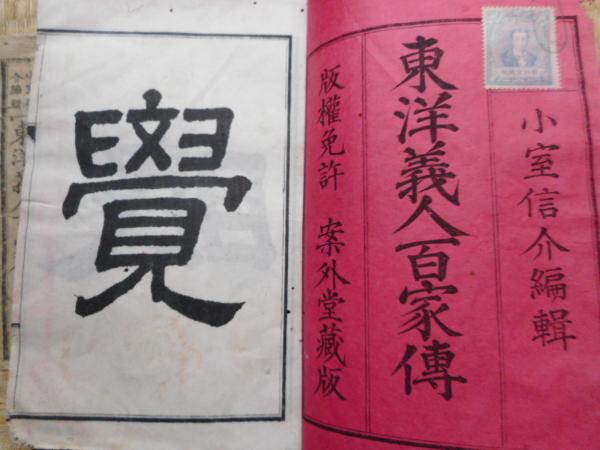 小室信介編輯
東洋義人百家傳
版權免許 案外堂藏版
覺
東洋義人